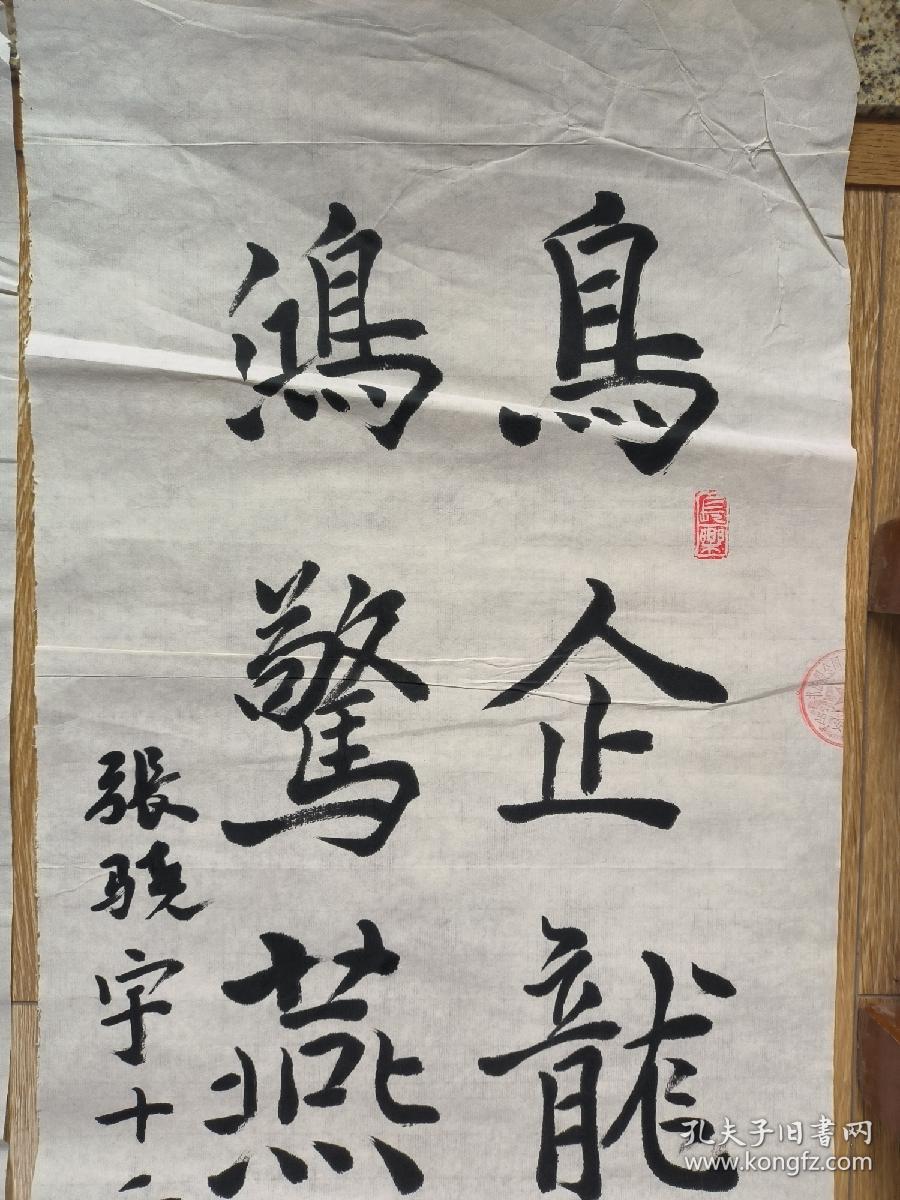 鳥企龍
鴻驚燕
張驍宇十
長樂
孔夫子旧書网
www.kongfz.com